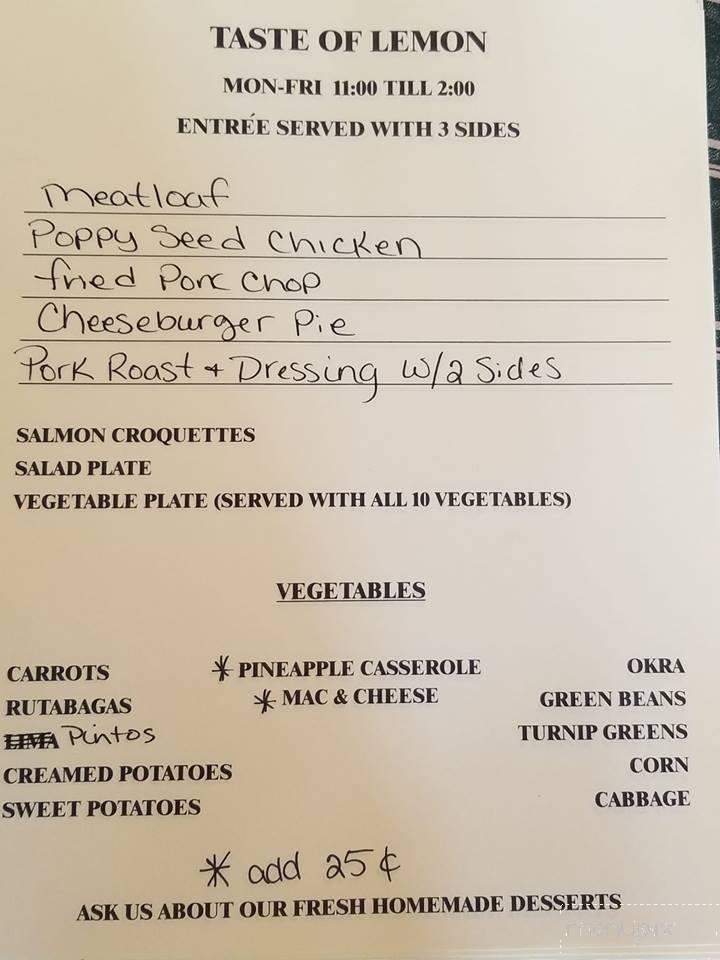 TASTE OF LEMON
MON-FRI 11:00 TILL 2:00
ENTRÉE SERVED WITH 3 SIDES
Meatloaf
Poppy Seed Chicken
fried Pork Chop
Cheeseburger Pie
Pork Roast + Dressing w/2 Sides
SALMON CROQUETTES
SALAD PLATE
VEGETABLE PLATE (SERVED WITH ALL 10 VEGETABLES)
VEGETABLES
CARROTS
RUTABAGAS
LIMA Pintos
CREAMED POTATOES
SWEET POTATOES
* PINEAPPLE CASSEROLE
* MAC & CHEESE
OKRA
GREEN BEANS
TURNIP GREENS
CORN
CABBAGE
* add 25¢
ASK US ABOUT OUR FRESH HOMEMADE DESSERTS